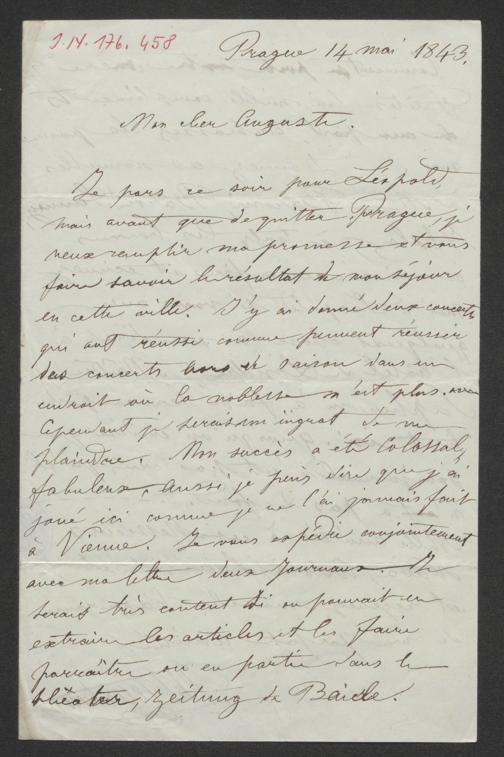 J.N. 176.458
Prague 14 mai 1843.
Mon cher Auguste.
Je pars ce soir pour Léopold,
mais avant que de quitter Prague, je
veux remplir ma promesse et vous
faire savoir le résultat de mon séjour
en cette ville. J'y ai donné deux concerts
qui ont réussi comme peuvent réussir
des concerts hors de saison dans un
endroit où la noblesse n'est plus.
Cependant je serais un ingrat de me
plaindre. Mon succès a été Colossal,
fabuleux, aussi je puis dire que j'ai
joué ici comme je ne l'ai jamais fait
à Vienne. Je vous expédie conjointement
avec ma lettre deux Journaux. Je
serais très content si on pouvait en
extraire les articles et les faire
parraître ou en partie dans le
théater, zeitung de Baüerle.